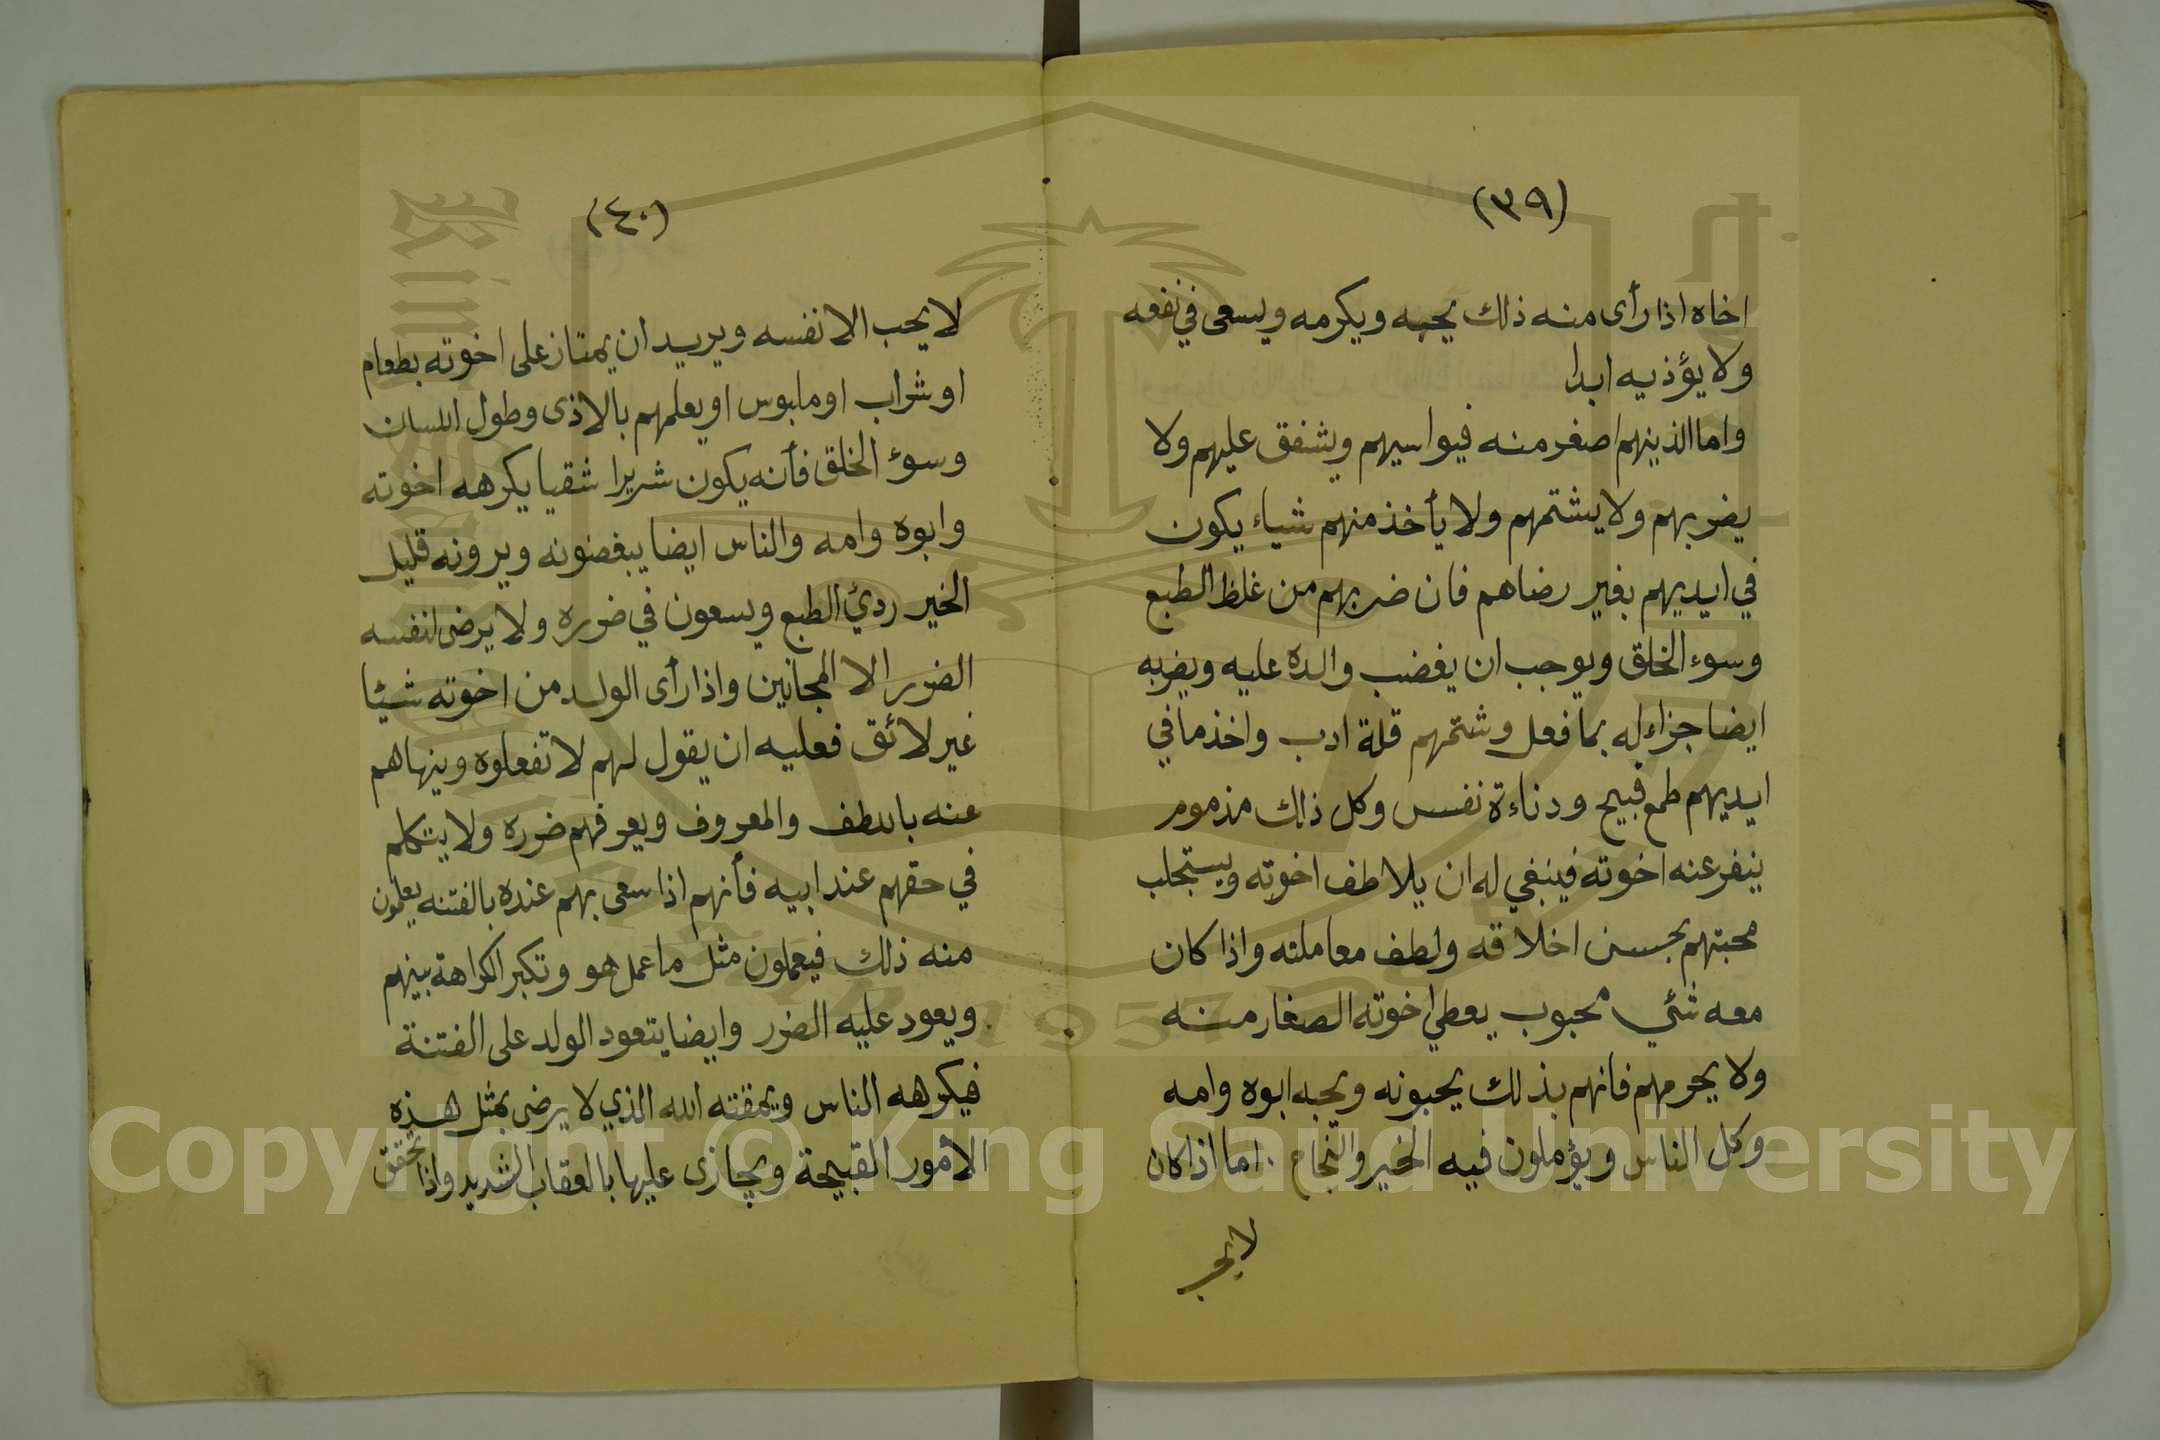 (٣٩)
اخاه اذا رأى منه ذلك يحبه ويكرمه ويسعى في نفعه
ولا يؤذيه ابدا
واما الذينهم اصغر منه فيواسيهم ويشفق عليهم ولا
يضربهم ولا يشتمهم ولا يأخذ منهم شياء يكون
في ايديهم بغير رضاهم فان ضربهم من غلظ الطبع
وسوء الخلق ويوجب ان يغضب والده عليه ويضربه
ايضا جزاء له بما فعل وشتمهم قلة ادب واخذ ما في
ايديهم طمع قبيح ودناءة نفس وكل ذلك مذموم
ينفر عنه اخوته فينبغي له ان يلاطف اخوته ويستجلب
محبتهم بحسن اخلاقه ولطف معاملته واذا كان
معه شئي محبوب يعطي اخوته الصغار منه
ولا يحرمهم فانهم بذلك يحبونه ويحبه ابوه وامه
وكل الناس ويؤملون فيه الخير والنجاح . اما اذا كان
لا يحب
(٤٠)
لا يحب الا نفسه ويريد ان يمتاز على اخوته بطعام
او شراب او ملبوس او يعلمهم بالاذى وطول اللسان
وسوء الخلق فأنه يكون شريرا شقيا يكرهه اخوته
وابوه وامه والناس ايضا يبغضونه ويرونه قليل
الخير ردئ الطبع ويسعون في ضرره ولا يرضى لنفسه
الضرر الا المجانين واذا رأى الولد من اخوته شيئا
غير لائق فعليه ان يقول لهم لا تفعلوه وينهاهم
عنه باللطف والمعروف ويعرفهم ضرره ولا يتكلم
في حقهم عند ابيه فأنهم اذا سعى بهم عنده بالفتنه يعلمون
منه ذلك فيعملون مثل ما عمل هو وتكبر الكراهة بينهم
ويعود عليه الضرر وايضا يتعود الولد على الفتنة
فيكرهه الناس ويمقته الله الذي لا يرضى بمثل هذه
الأمور القبيحة ويجازى عليها بالعقاب الشديد واذا تحقق
Copyright © King Saud University
1957